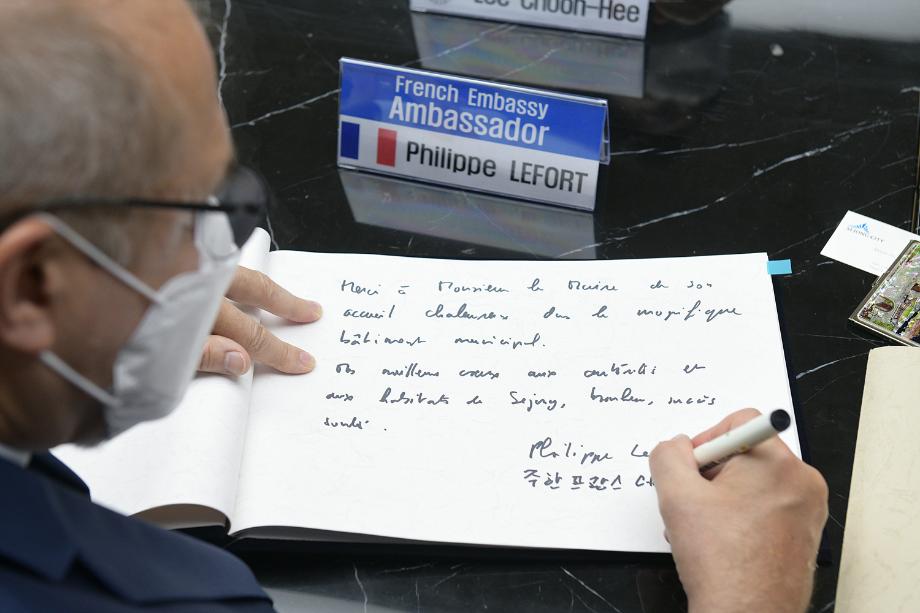 Lee Choon-Hee
French Embassy
Ambassador
Philippe LEFORT
SEJONG CITY
Merci à Monsieur le Maire de son
accueil chaleureux dans le magnifique
bâtiment municipal.
meilleurs vœux aux autorités et
aux habitants de Sejong, bonheur, succès
santé.
Philippe Le
주한 프랑스 대